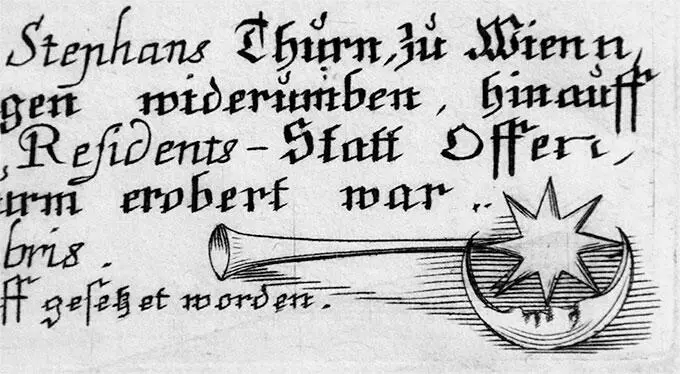 Stephans Thůrn, zů Wienn,
gen̄ widerůmben, hinauff
Residents-Statt Offen,
urm erobert war..
bris.
ff gesetzet worden.